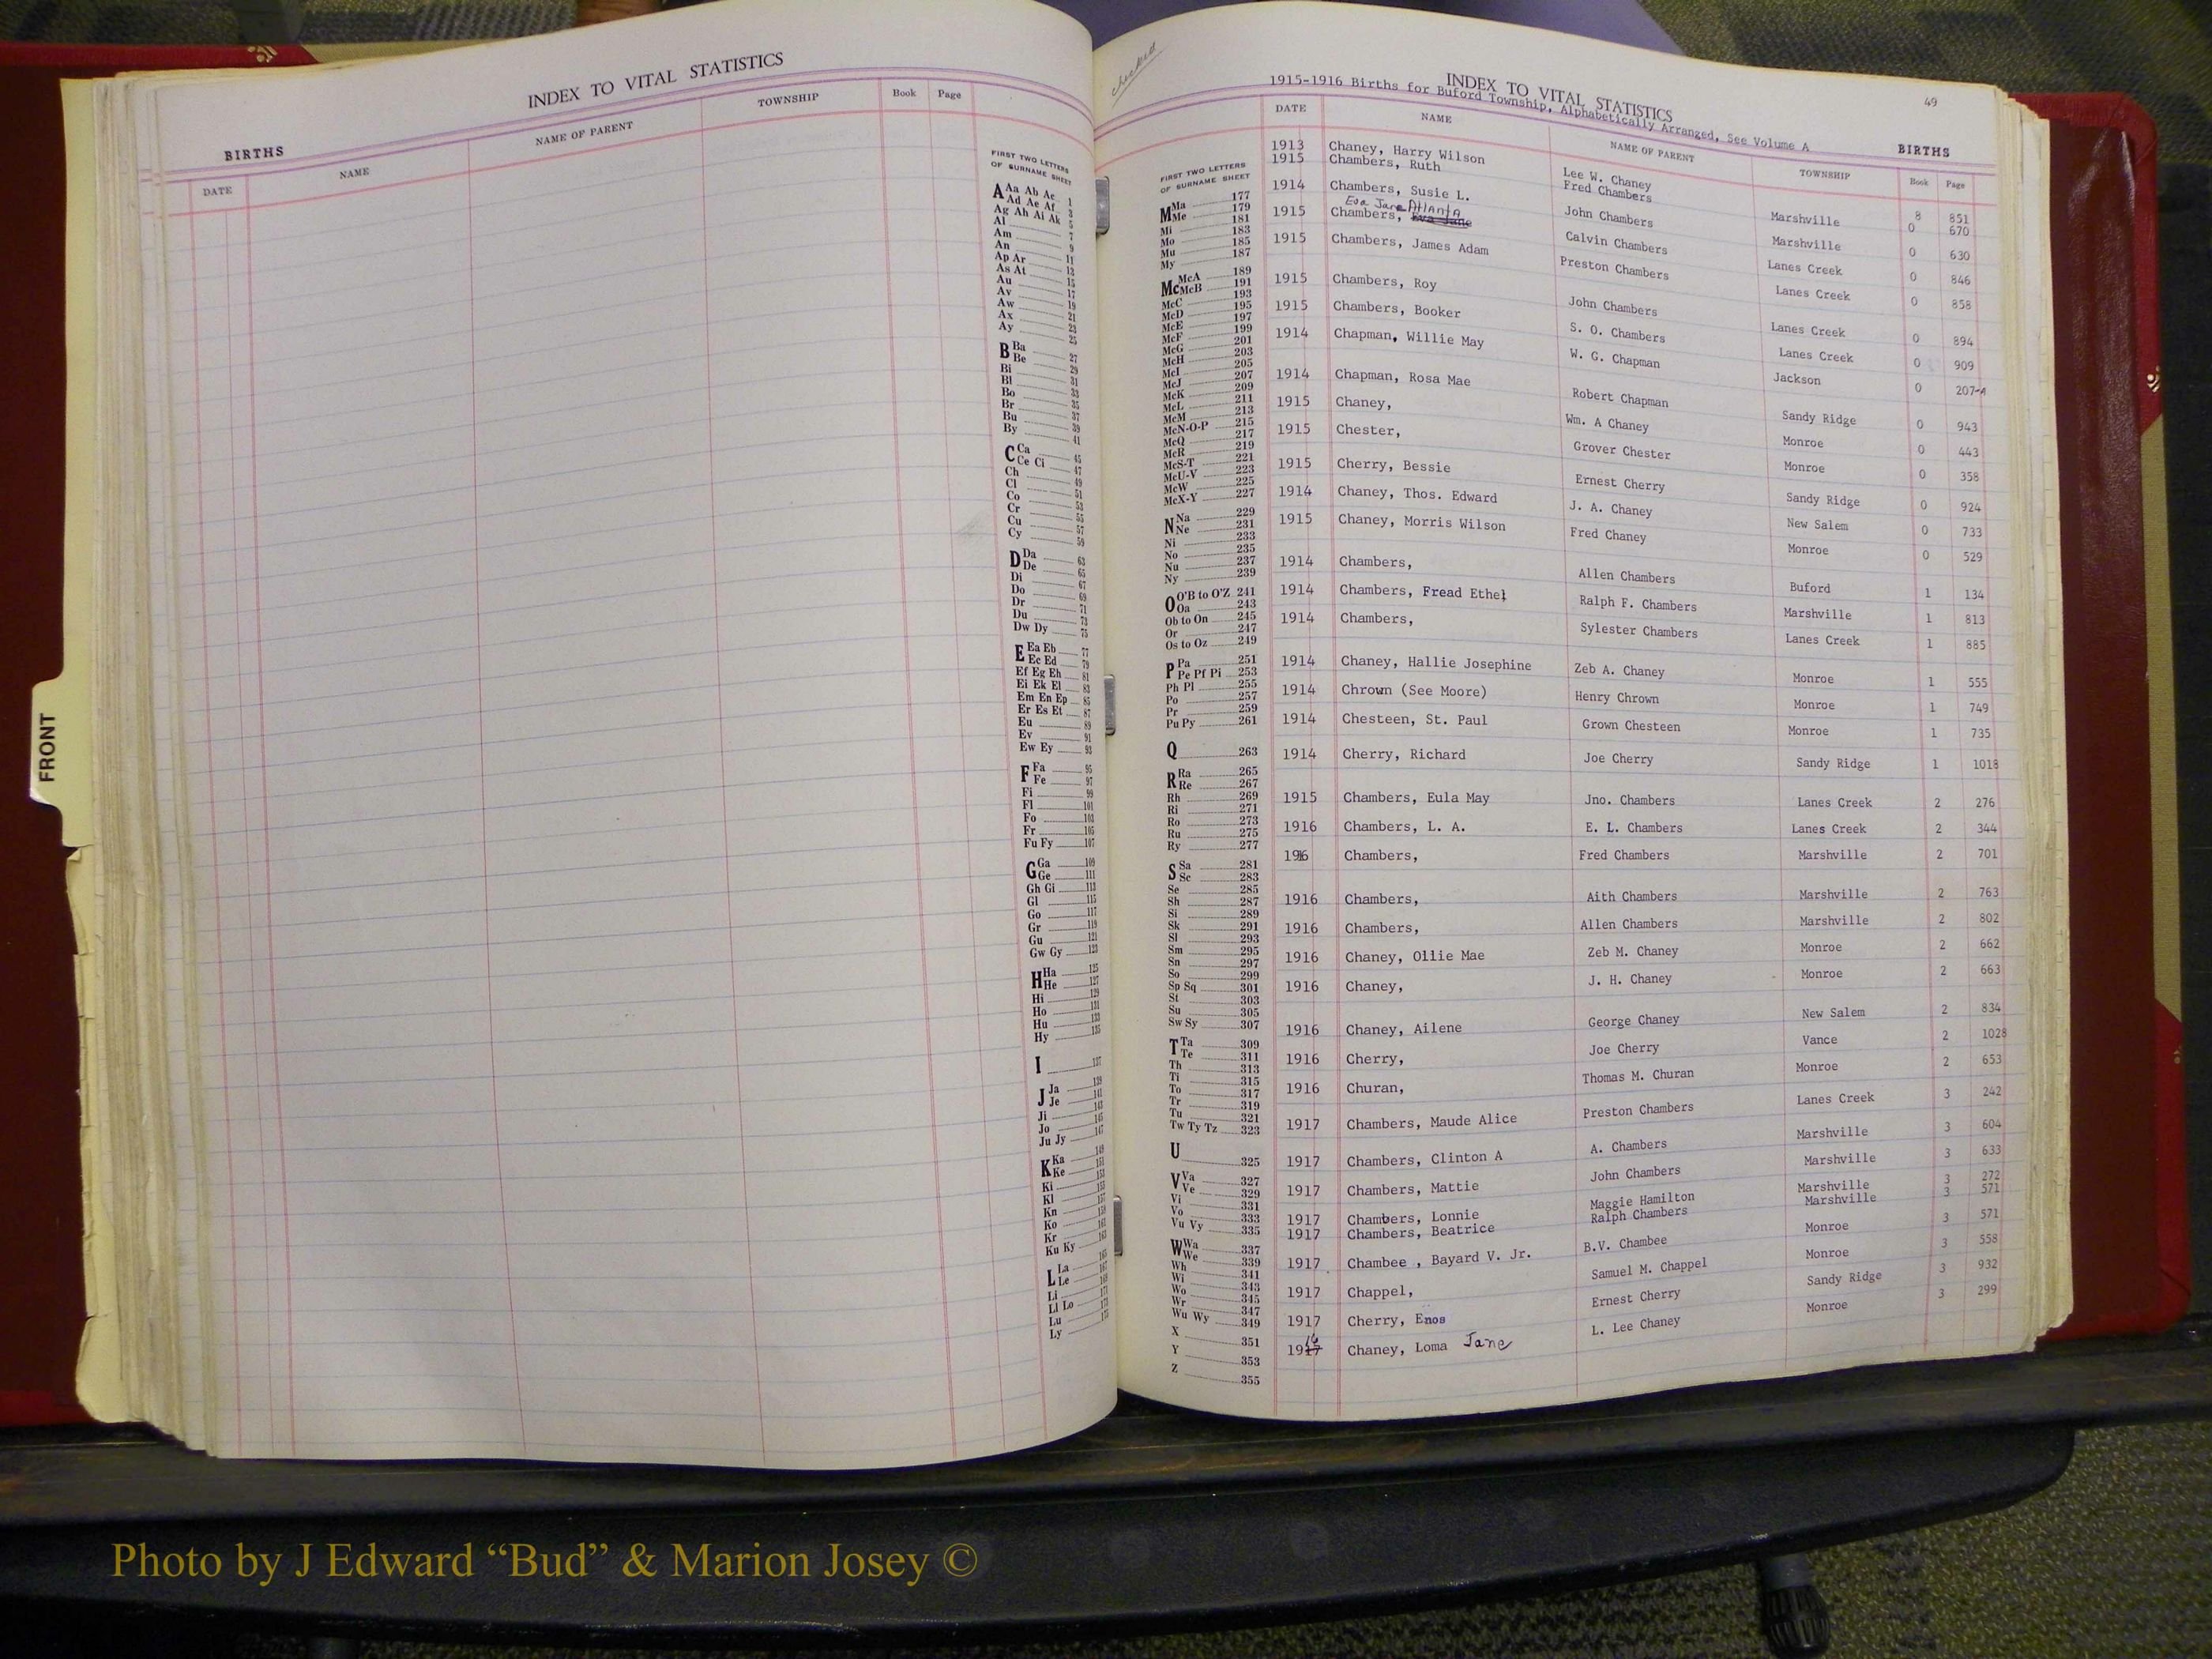 INDEX TO VITAL STATISTICS
BIRTHS
DATE NAME NAME OF PARENT TOWNSHIP Book Page
FIRST TWO LETTERS
OF SURNAME SHEET
A Aa Ab Ac 1
Ad Ae Af 3
Ag Ah Ai Ak 5
Al 7
Am 9
An 11
Ap Ar 13
As At 15
Au 17
Av 19
Aw 21
Ax 23
Ay 25
B Ba 27
Be 29
Bi 31
Bl 33
Bo 35
Br 37
Bu 39
By 41
C Ca 45
Ce Ci 47
Ch 49
Cl 51
Co 53
Cr 55
Cu 57
Cy 59
D Da 63
De 65
Di 67
Do 69
Dr 71
Du 73
Dw Dy 75
E Ea Eb 77
Ec Ed 79
Ef Eg Eh 81
Ei Ek El 83
Em En Ep 85
Er Es Et 87
Eu 89
Ev 91
Ew Ey 93
F Fa 95
Fe 97
Fi 99
Fl 101
Fo 103
Fr 105
Fu Fy 107
G Ga 109
Ge 111
Gh Gi 113
Gl 115
Go 117
Gr 119
Gu 121
Gw Gy 123
H Ha 125
He 127
Hi 129
Ho 131
Hu 133
Hy 135
I 137
J Ja 139
Je 141
Ji 143
Jo 145
Ju Jy 147
K Ka 149
Ke 151
Ki 153
Kl 155
Kn 157
Ko 159
Kr 161
Ku Ky 163
L La 165
Le 167
Li 169
Ll Lo 171
Lu 173
Ly 175
FRONT
checked
INDEX TO VITAL STATISTICS
49
1915-1916 Births for Buford Township, Alphabetically Arranged, See Volume A
BIRTHS
DATE NAME NAME OF PARENT TOWNSHIP Book Page
FIRST TWO LETTERS
OF SURNAME SHEET
M Ma 177
Me 179
Mi 181
Mo 183
Mu 185
My 187
Mc McA 189
McB 191
McC 193
McD 195
McE 197
McF 199
McG 201
McH 203
McI 205
McJ 207
McK 209
McL 211
McM 213
McN-O-P 215
McQ 217
McR 219
McS-T 221
McU-V 223
McW 225
McX-Y 227
N Na 229
Ne 231
Ni 233
No 235
Nu 237
Ny 239
O O'B to O'Z 241
Oa 243
Ob to On 245
Or 247
Os to Oz 249
P Pa 251
Pe Pf Pi 253
Ph Pl 255
Po 257
Pr 259
Pu Py 261
Q 263
R Ra 265
Re 267
Rh 269
Ri 271
Ro 273
Ru 275
Ry 277
S Sa 281
Sc 283
Se 285
Sh 287
Si 289
Sk 291
Sl 293
Sm 295
Sn 297
So 299
Sp Sq 301
St 303
Su 305
Sw Sy 307
T Ta 309
Te 311
Th 313
Ti 315
To 317
Tr 319
Tu 321
Tw Ty Tz 323
U 325
V Va 327
Ve 329
Vi 331
Vo 333
Vu Vy 335
W Wa 337
We 339
Wh 341
Wi 343
Wo 345
Wr 347
Wu Wy 349
X 351
Y 353
Z 355
1913 Chaney, Harry Wilson Lee W. Chaney Marshville 8 851
1915 Chambers, Ruth Fred Chambers 0 670
1914 Chambers, Susie L. John Chambers Marshville 0 630
Eva Jane Atlanta
1915 Chambers, Eva Jane Calvin Chambers Lanes Creek 0 846
1915 Chambers, James Adam Preston Chambers Lanes Creek 0 858
1915 Chambers, Roy John Chambers Lanes Creek 0 894
1915 Chambers, Booker S. O. Chambers Lanes Creek 0 909
1914 Chapman, Willie May W. G. Chapman Jackson 0 207-A
1914 Chapman, Rosa Mae Robert Chapman Sandy Ridge 0 943
1915 Chaney, Wm. A Chaney Monroe 0 443
1915 Chester, Grover Chester Monroe 0 358
1915 Cherry, Bessie Ernest Cherry Sandy Ridge 0 924
1914 Chaney, Thos. Edward J. A. Chaney New Salem 0 733
1915 Chaney, Morris Wilson Fred Chaney Monroe 0 529
1914 Chambers, Allen Chambers Buford 1 134
1914 Chambers, Fread Ethel Ralph F. Chambers Marshville 1 813
1914 Chambers, Sylester Chambers Lanes Creek 1 885
1914 Chaney, Hallie Josephine Zeb A. Chaney Monroe 1 555
1914 Chrown (See Moore) Henry Chrown Monroe 1 749
1914 Chesteen, St. Paul Grown Chesteen Monroe 1 735
1914 Cherry, Richard Joe Cherry Sandy Ridge 1 1018
1915 Chambers, Eula May Jno. Chambers Lanes Creek 2 276
1916 Chambers, L. A. E. L. Chambers Lanes Creek 2 344
1916 Chambers, Fred Chambers Marshville 2 701
1916 Chambers, Aith Chambers Marshville 2 763
1916 Chambers, Allen Chambers Marshville 2 802
1916 Chaney, Ollie Mae Zeb M. Chaney Monroe 2 662
1916 Chaney, J. H. Chaney Monroe 2 663
1916 Chaney, Ailene George Chaney New Salem 2 834
1916 Cherry, Joe Cherry Vance 2 1028
1916 Churan, Thomas M. Churan Monroe 2 653
1917 Chambers, Maude Alice Preston Chambers Lanes Creek 3 242
1917 Chambers, Clinton A A. Chambers Marshville 3 604
1917 Chambers, Mattie John Chambers Marshville 3 633
1917 Chambers, Lonnie Maggie Hamilton Marshville 3 272
1917 Chambers, Beatrice Ralph Chambers Marshville 3 571
1917 Chambee , Bayard V. Jr. B.V. Chambee Monroe 3 571
1917 Chappel, Samuel M. Chappel Monroe 3 558
1917 Cherry, Enos Ernest Cherry Sandy Ridge 3 932
16
1917 Chaney, Loma Jane L. Lee Chaney Monroe 3 299
Photo by J Edward “Bud” & Marion Josey ©